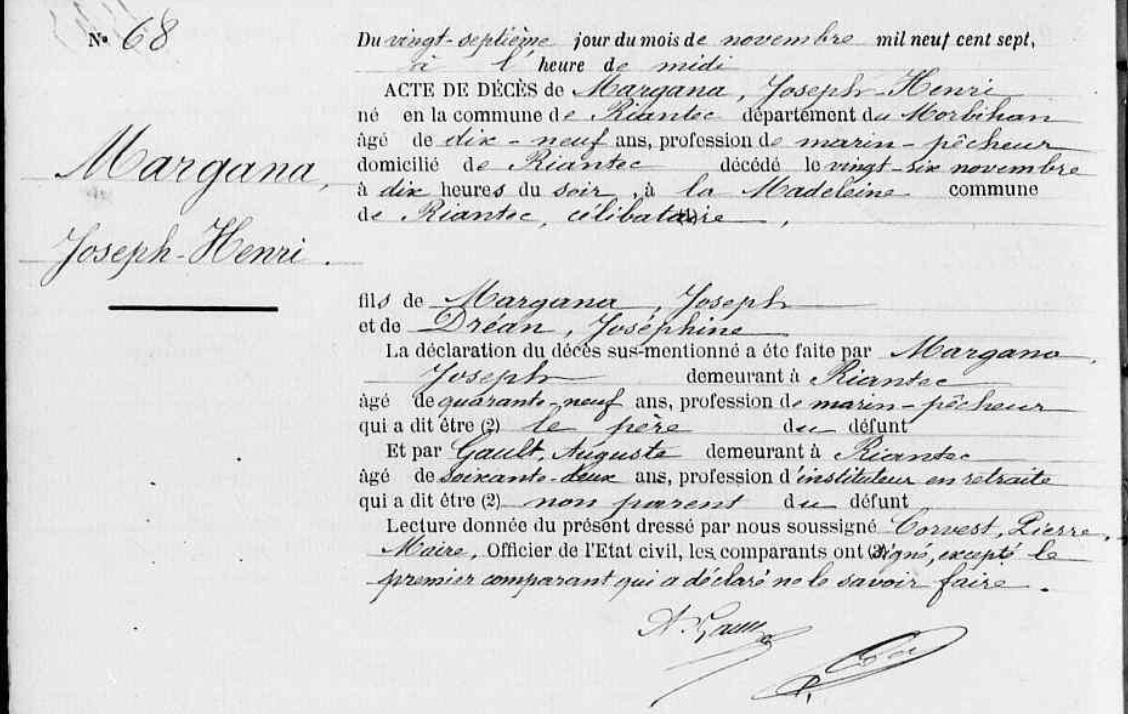 N° 68
Margana,
Joseph-Henri.
Du vingt-septième jour du mois de novembre mil neuf cent sept,
à l'heure de midi
ACTE DE DÉCÈS de Margana, Joseph-Henri
né en la commune de Riantec département du Morbihan
âgé de dix-neuf ans, profession de marin-pêcheur
domicilié de Riantec décédé le vingt-six novembre
à dix heures du soir, à la Madeleine commune
de Riantec, célibataire,
fils de Margana, Joseph
et de Dréan, Joséphine
La déclaration du décès sus-mentionné a été faite par Margana,
Joseph demeurant à Riantec
âgé de quarante-neuf ans, profession de marin-pêcheur
qui a dit être (2) le père du défunt
Et par Gault, Auguste demeurant à Riantec
âgé de soixante-deux ans, profession d'instituteur en retraite
qui a dit être (2) non parent du défunt
Lecture donnée du présent dressé par nous soussigné Corvest, Pierre,
Maire, Officier de l'Etat civil, les comparants ont (3) signé, excepté le
premier comparant qui a déclaré ne le savoir faire.
A. Gault